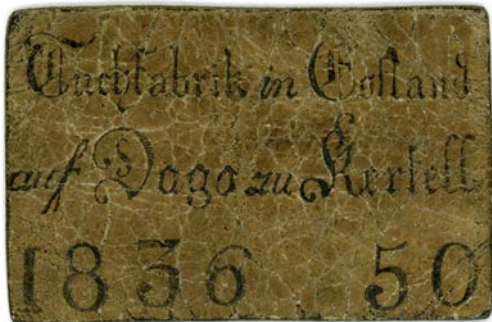 Tuchfabrik in Eostand
auf Dago zu Kertell
1836 50